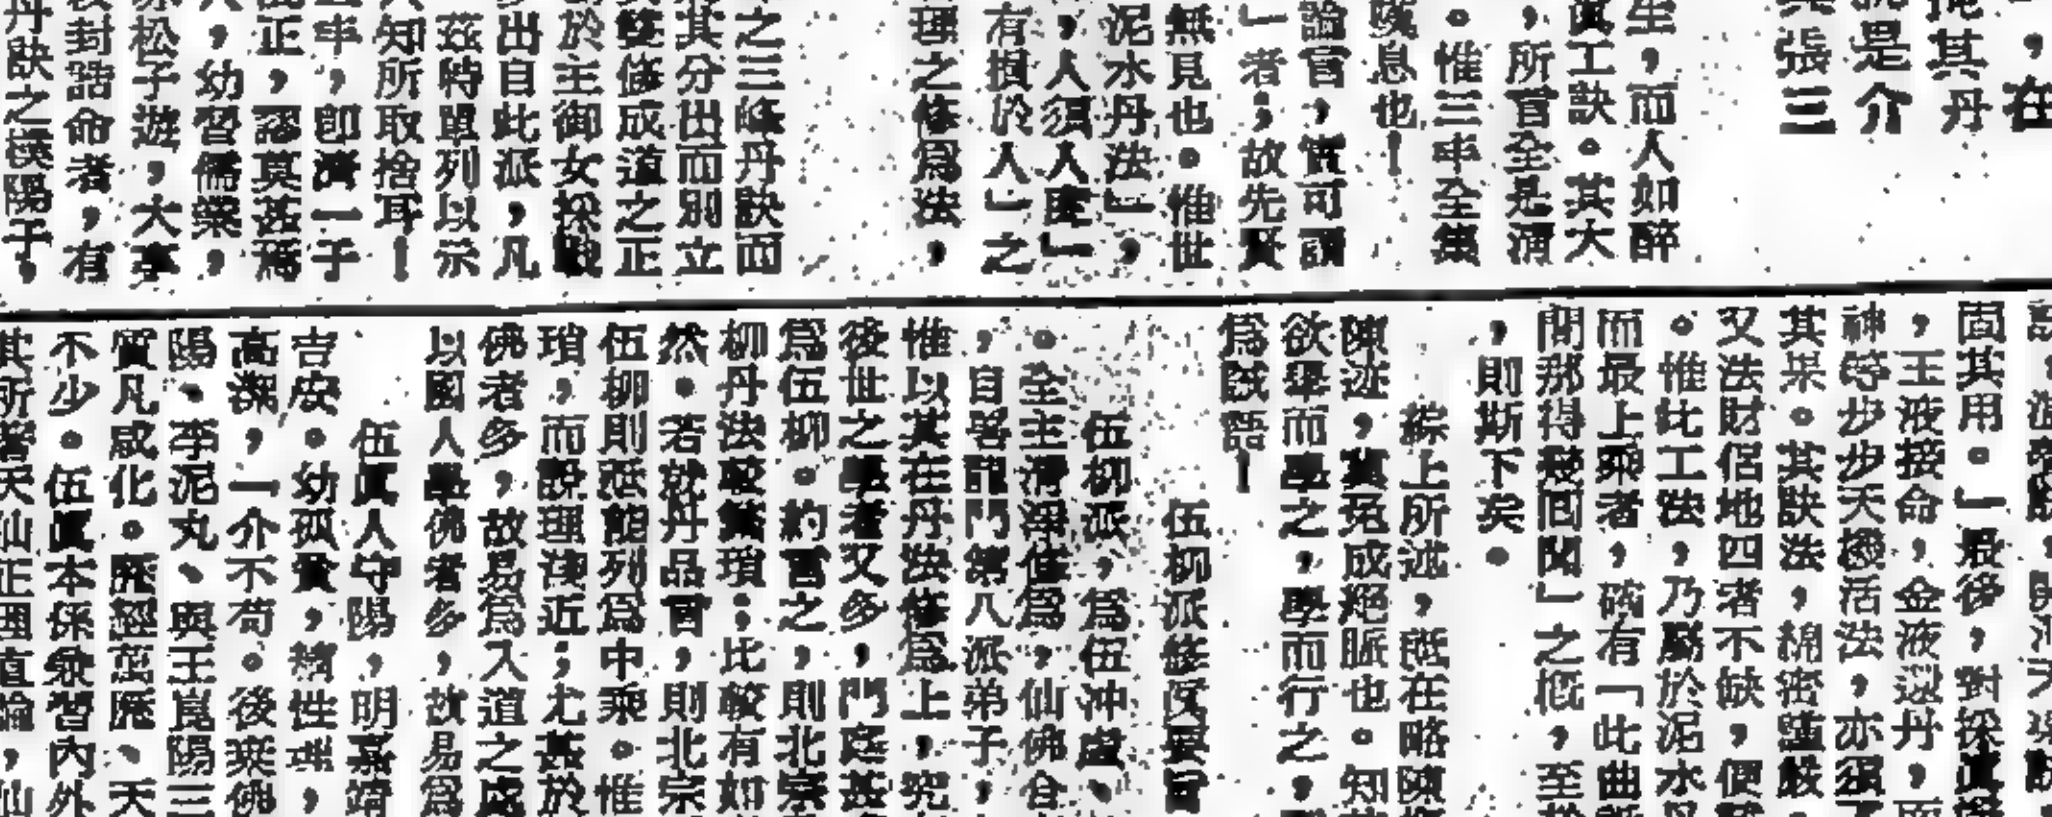 ，在
俺其丹
就是介
張三
生，而人如醉
眞工訣。其大
，所言全是清
。惟三丰全集
嘆息也！
論言，實可謂
」者；故先賢
無見也。惟世
泥水丹法」，
，人須人度」
有損於人」之
理之修爲法，
之三峰丹訣而
其分出而別立
雙修成道之正
於主御女採戰
出自此派，凡
茲特單列以示
人知所取捨耳！
丰，卽濟一子
正，認莫甚焉
，幼習儒業，
松子遊，大享
封誥命者，有
丹訣之
固其用。」最後，對採眞
，玉液接命，金液還丹，而
神等步步天機活法，亦須
其果。其訣法，綿密
又法財侶地四者不缺，便
。惟此工法，乃屬於泥水丹
而最上乘者，確有「此曲
間那得幾回聞」之慨，至
，則斯下矣。
綜上所述，旣在略陳
陳迹，冀免成絕脈也。知
欲舉而學之，學而行之，
爲戲語！
伍柳派修眞要旨
伍柳派，爲伍沖虛、
。全主清淨修爲，仙佛合
，自署龍門第八派弟子，
惟以其在丹法修爲上，究
後世之學者又多，門庭甚
爲伍柳。約言之，則北宗
柳丹法最繁瑣；比較有如
然。若就丹品言，則北宗
伍柳則祗能列爲中乘。惟
瑣，而說理淺近；尤甚於
佛者多，故易爲入道之
以國人學佛者多，故易爲
伍眞人守陽，明嘉靖
吉安。幼孤貧，精性理，
高潔，一介不苟。後來佛
陽、李泥丸、與王崑陽三
實凡感化。歷經萬曆、天
不少。伍眞本係兼習內外
其所著天仙正理直論，仙